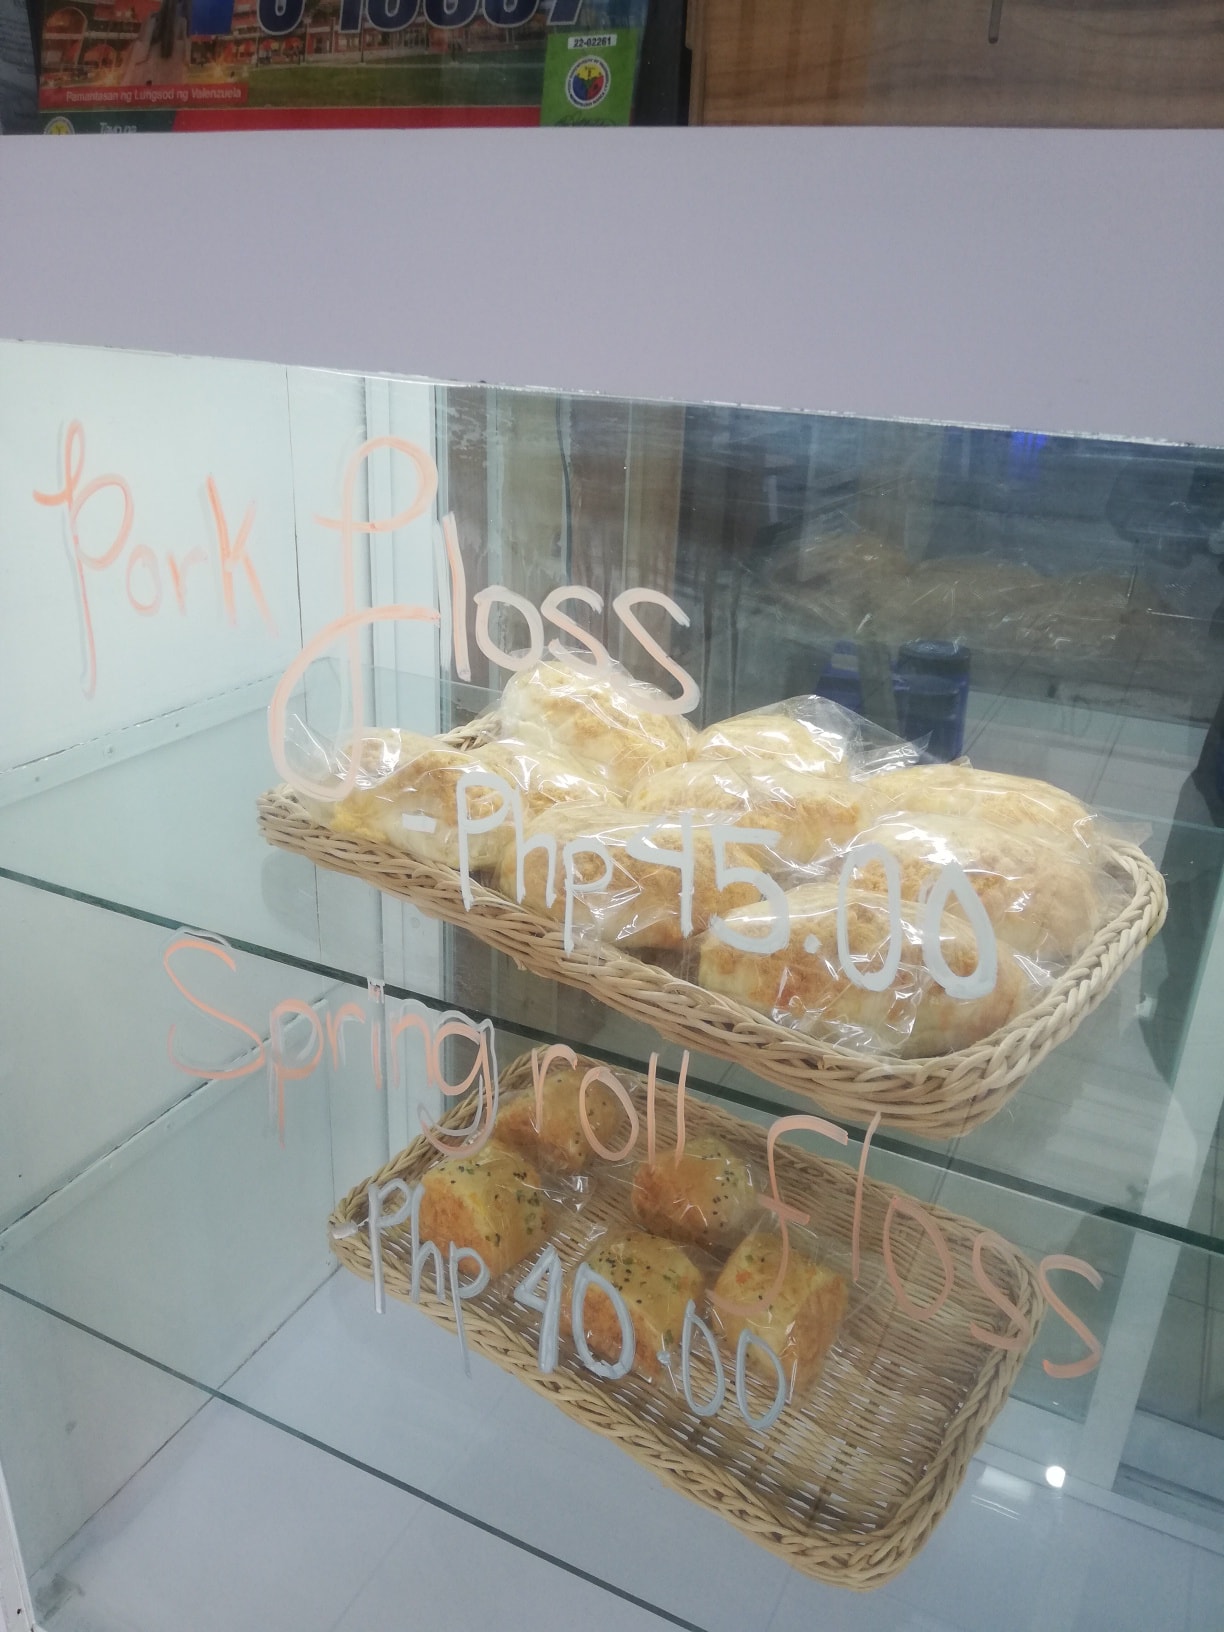 22-02261
Pamantasan ng Lungsod ng Valenzuela
Pork floss
-Php 45.00
Spring roll Floss
Php 40.00